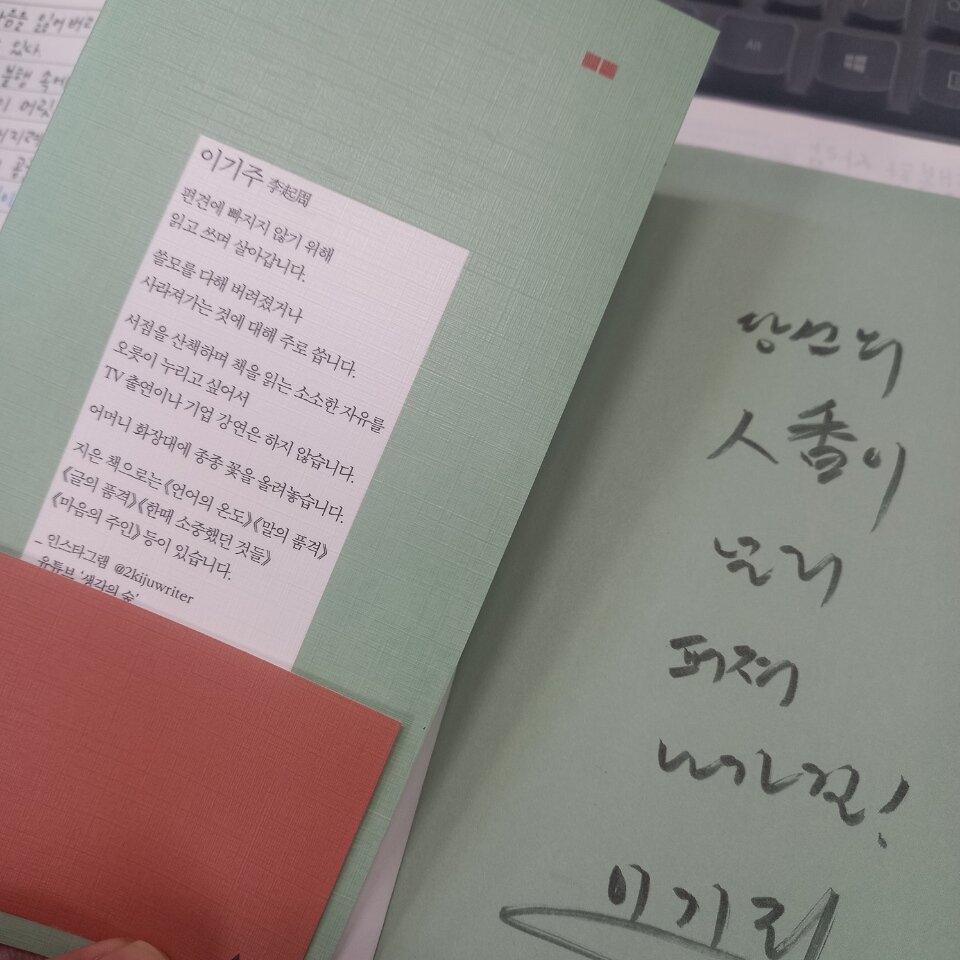 음을 잃어버리
있다.
불행 속에
이기주 李起周
편견에 빠지지 않기 위해
읽고 쓰며 살아갑니다.
쓸모를 다해 버려졌거나
사라져가는 것에 대해 주로 씁니다.
서점을 산책하며 책을 읽는 소소한 자유를
오롯이 누리고 싶어서
TV 출연이나 기업 강연은 하지 않습니다.
어머니 화장대에 종종 꽃을 올려놓습니다.
지은 책으로는 《언어의 온도》《말의 품격》
《글의 품격》《한때 소중했던 것들》
《마음의 주인》 등이 있습니다.
– 인스타그램 @2kijuwriter
유튜브 '생각의 숲'
Alt
당신의
人香이
널리
퍼져
나가길!
이기주